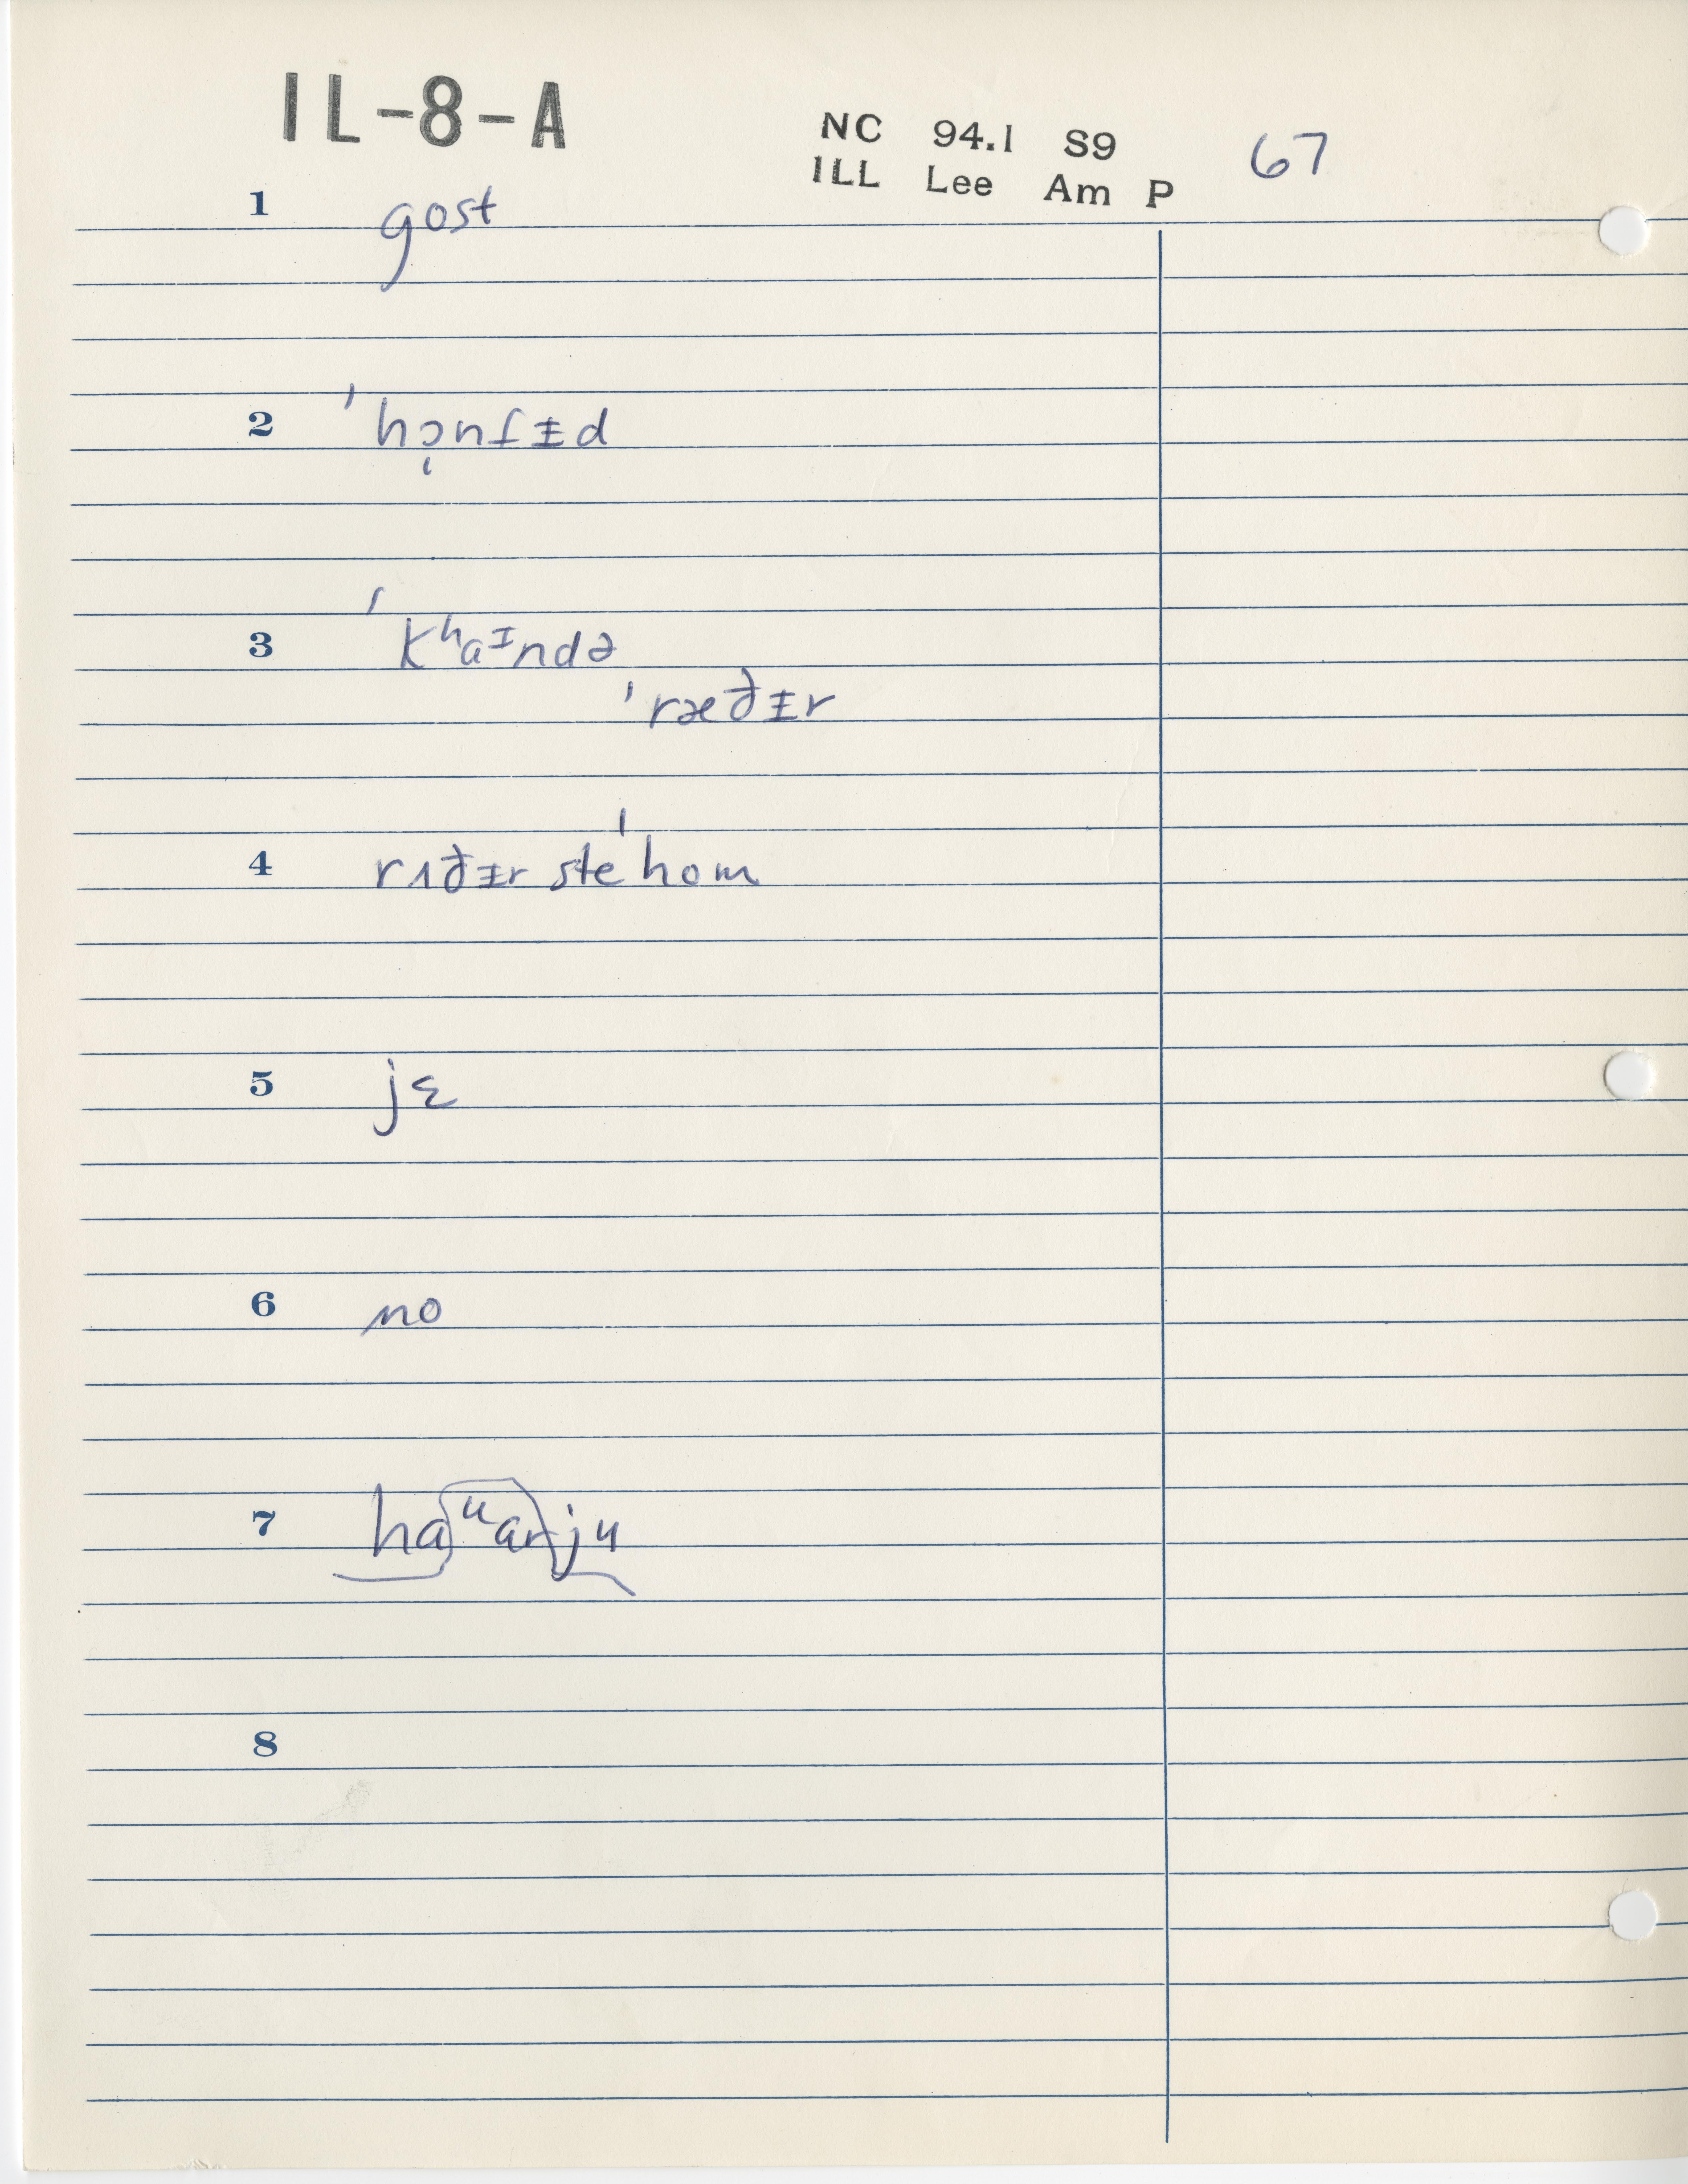 IL-8-A
NC 94.1 S9 67
ILL Lee Am P
1 gost
2 ˈhɔ̩nʃᵻd
3 ˈkʰaᶦndə
ˈræðᵻr
4 rʌðᵻr steˈhom
5 jɛ
6 no
7 haᵘarju
8